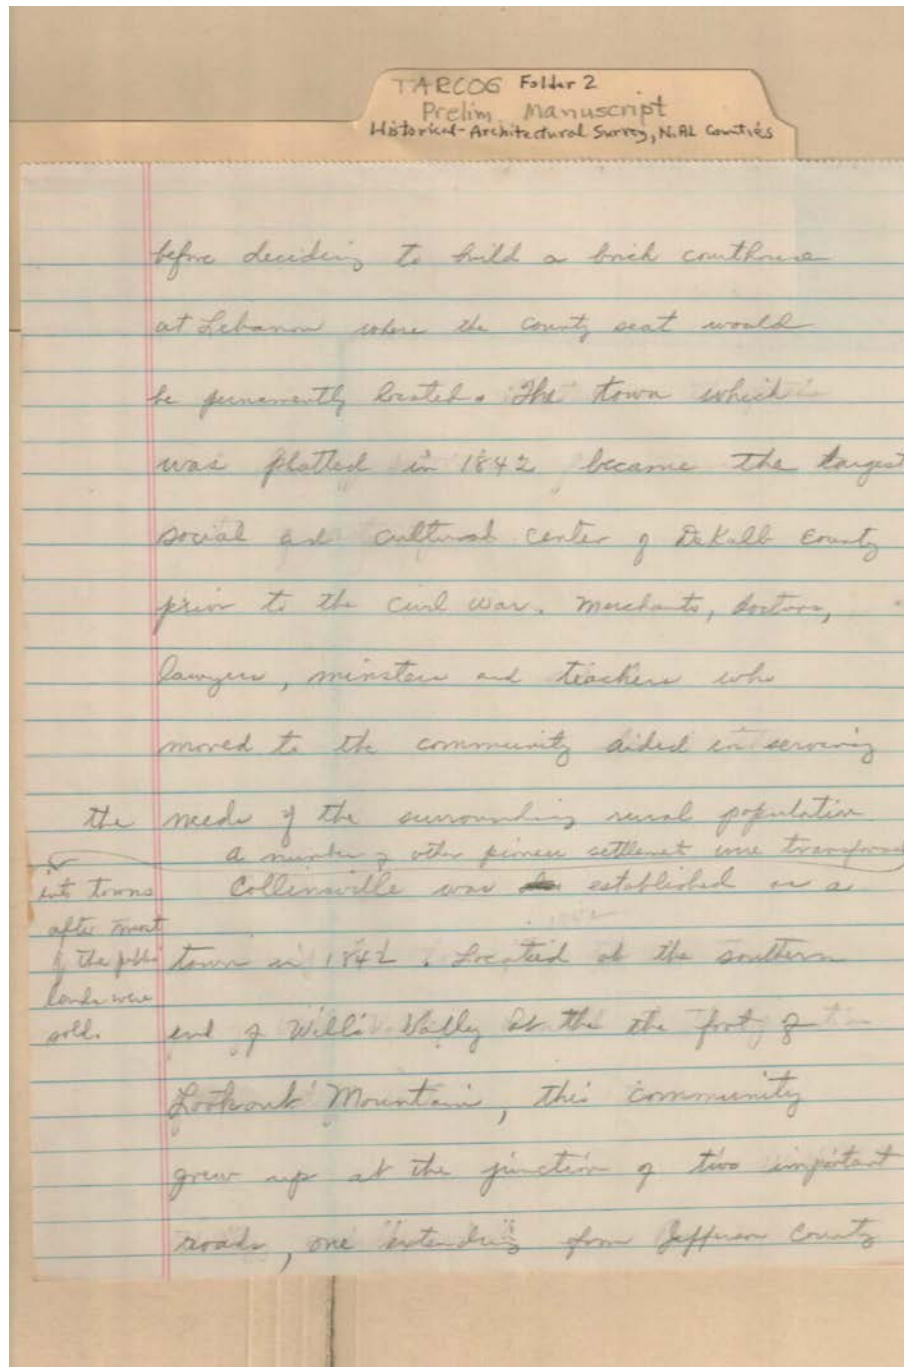 TARCOG Folder 2
Prelim. Manuscript
Historical-Architectural Survey, N.AL Counties
before deciding to build a brick courthouse
at Lebanon where the county seat would
be permanently located. The town which
was platted in 1842 became the largest
social and cultural center of DeKalb County
prior to the civil war. Merchants, doctors,
lawyers, minsters and teachers who
moved to the community aided in serving
the needs of the surrounding rural population
a number of other pioneer settlement were transformed
into towns
after most
of the public
lands were
sold.
Collinsville was established as a
town in 1842. Located at the southern
end of Will's Valley at the the foot of
Lookout Mountain, this community
grew up at the junction of two important
roads, one extending from Jefferson County